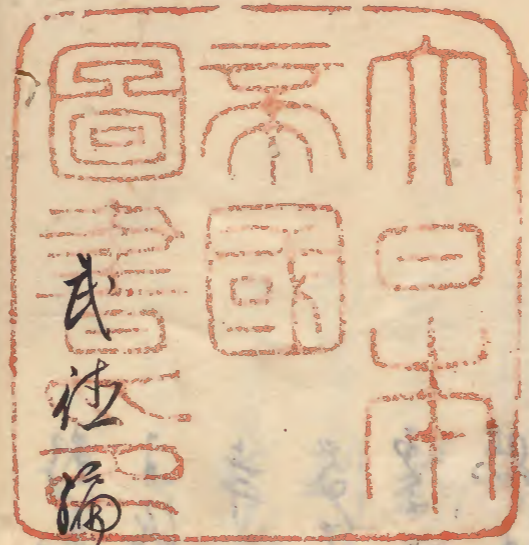 大日本
帝國
圖書印
武徳編